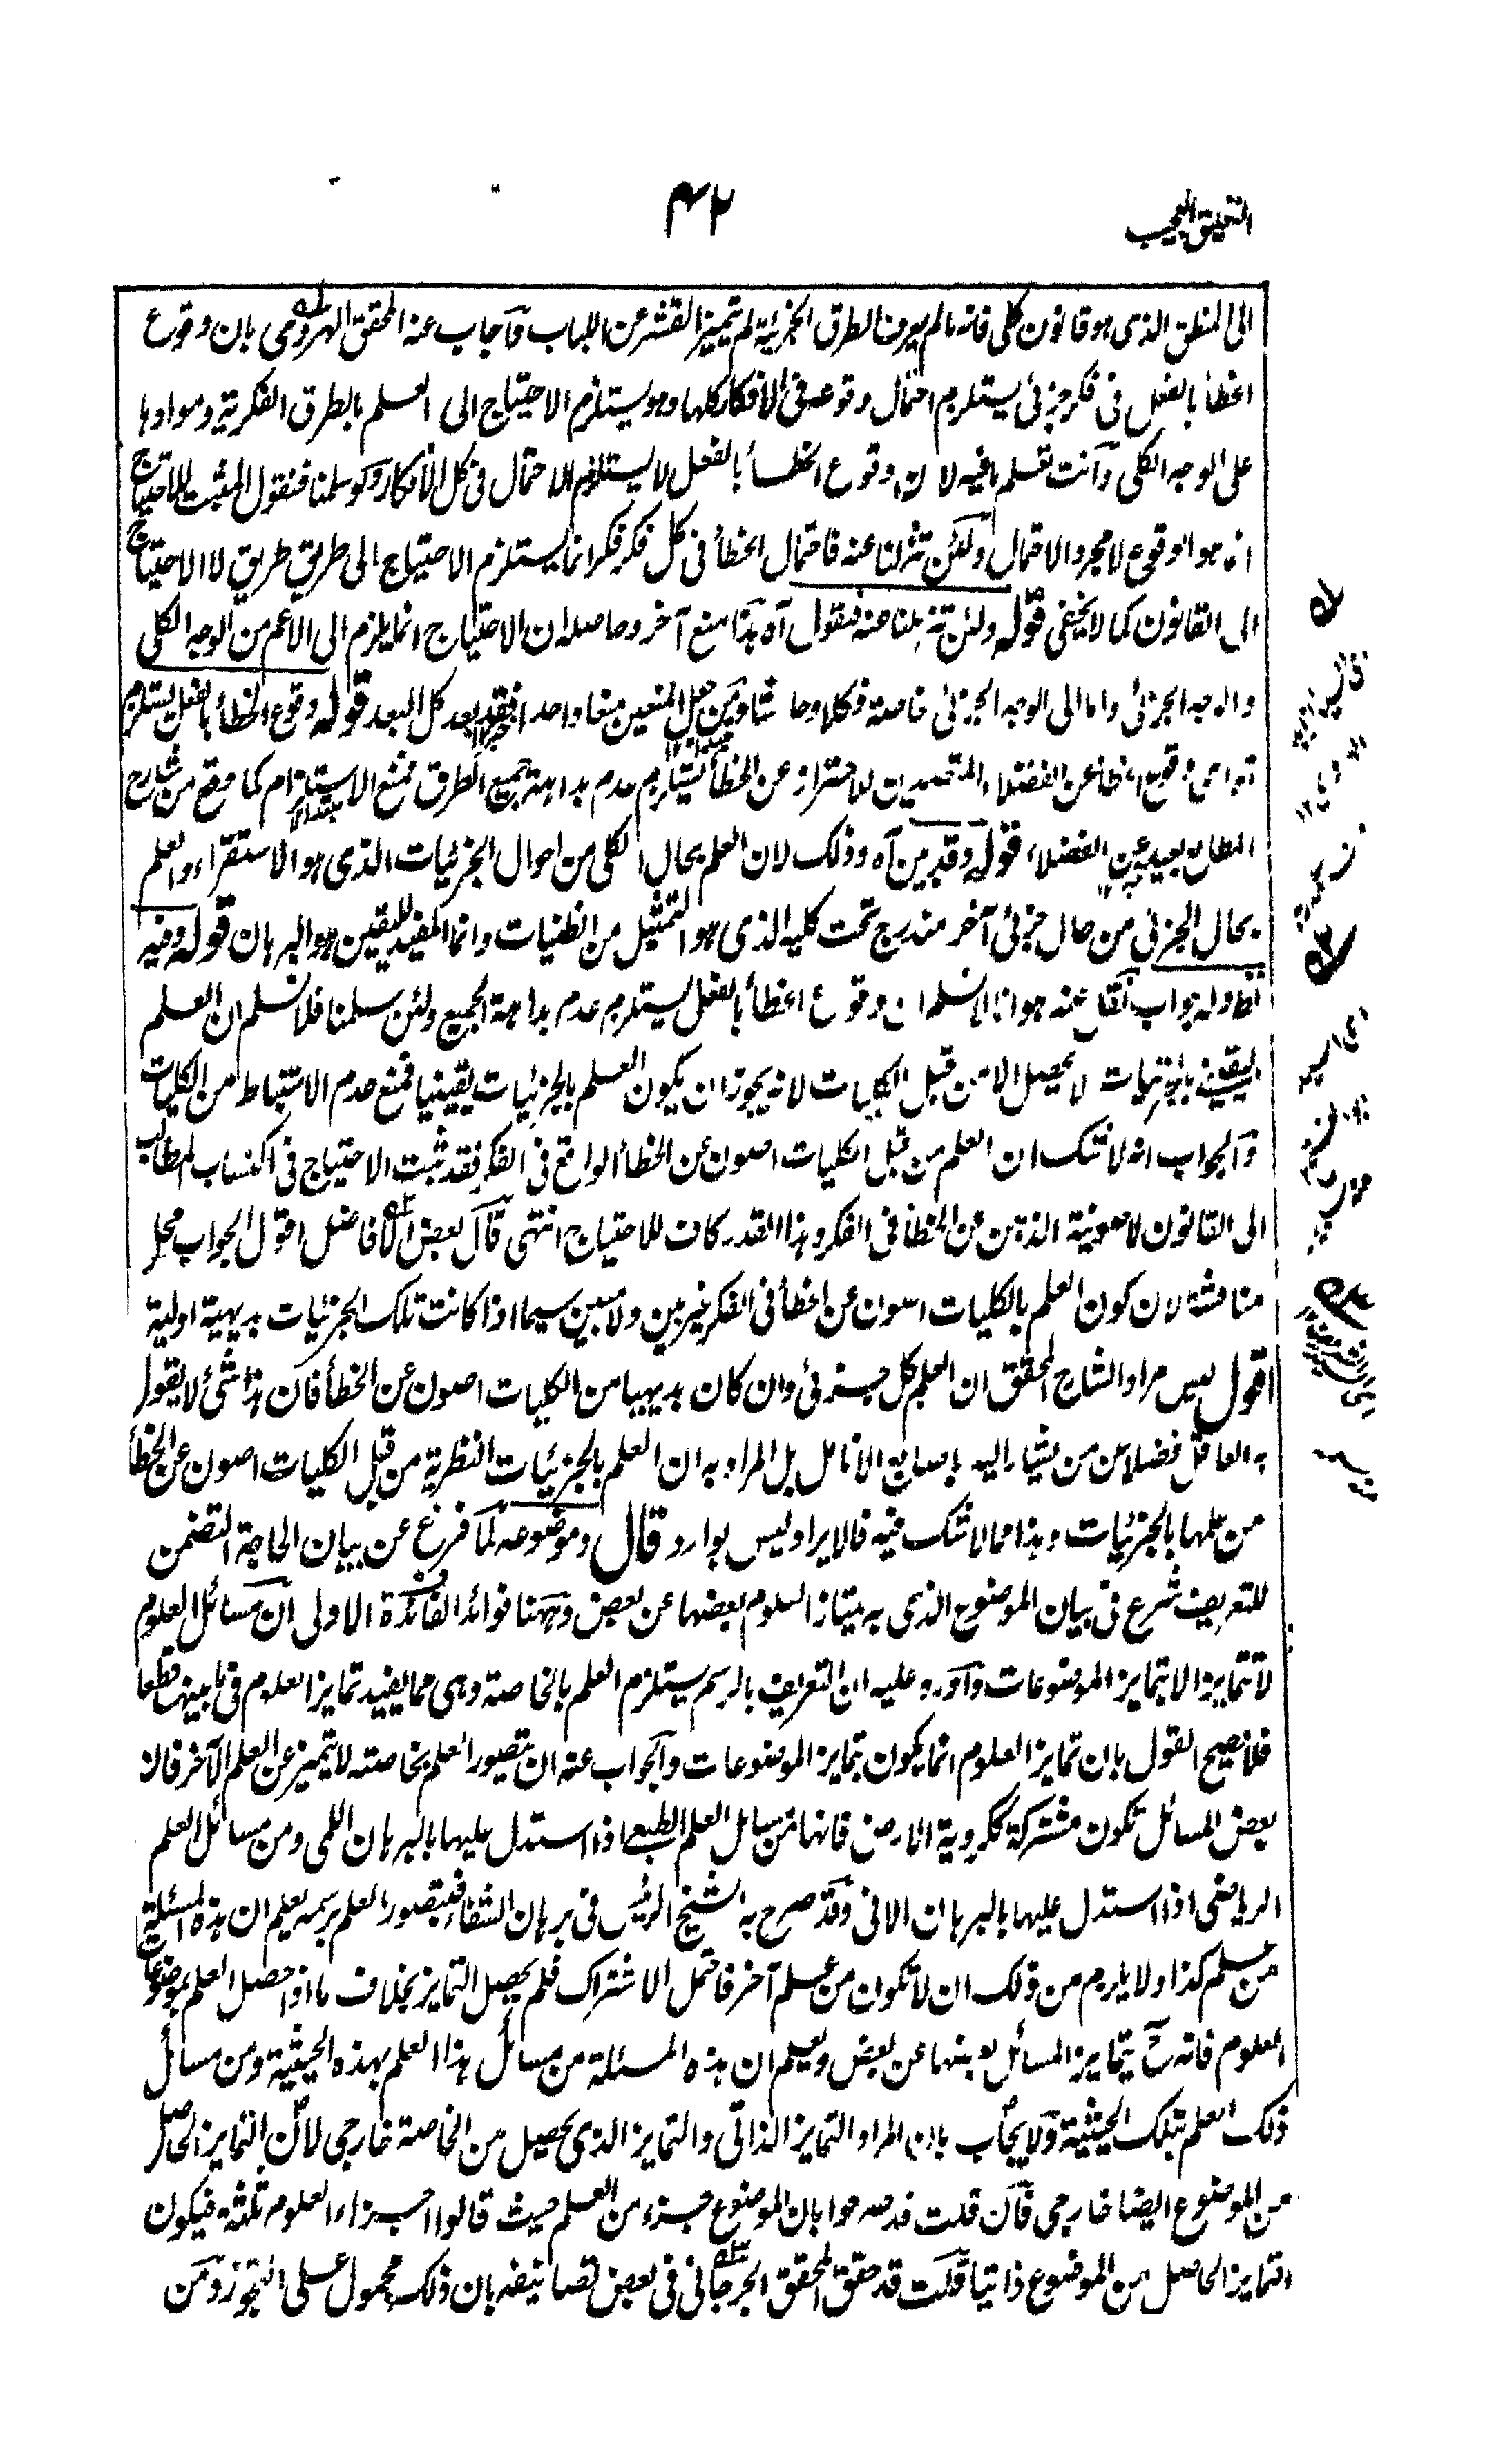 التعليق العجيب
۴۲
الى المنطق الذى هو قانون كلى فانه ما لم يعرف الطرق الجزئية لم تميز القشر عن اللباب وآجاب عنه المحقق الهروى بان وقوع
الخطأ بالفعل فى فكر جزئى يستلزم احتمال وقوعه فى الأفكار كلها وهو يستلزم الاحتياج الى العلم بالطرق الفكرية وموادها
على الوجه الكلى وآنت تعلم ما فيه لان وقوع الخطأ بالفعل لا يستلزم الاحتمال فى كل الأفكار ولو سلمنا فنقول المثبت للاحتياج
انما هو الوقوع لا مجرد الاحتمال ولئن تنزلنا عنه فاحتمال الخطأ فى كل فكر فكر انما يستلزم الاحتياج الى طريق طريق لا الاحتياج
الى القانون كما لا يخفى قوله ولئن تنزلنا عنه فنقول آه هذا منع آخر وحاصله ان الاحتياج انما يلزم الى الأعم من الوجه الكلى
والوجه الجزئى واما الى الوجه الجزئى خاصة فكلا وحاشا ومن جعل المنعين منعا واحدا فقد بعد كل البعد قوله وقوع الخطأ بالفعل يستلزم
آه اى وقوع الخطأ عن الفضلاء المتصدين للاحتراز عن الخطأ يستلزم عدم بداهة جميع الطرق فمنع الاستلزام كما وقع من شارح
المطالع بعيد عن الفضلاء قوله وقد بين آه وذلك لان العلم بحال الكلى من احوال الجزئيات الذى هو الاستقراء والعلم
بحال الجزئى من حال جزئى آخر مندرج تحت كليه الذى هو التمثيل من الظنيات وانما المفيد لليقين هو البرهان قوله وفيه
نظر وله جواب نقل عنه هو انا لا نسلم ان وقوع الخطأ بالفعل يستلزم عدم بداهة الجميع ولئن سلمنا فلا نسلم ان العلم
اليقينى بالجزئيات لا يحصل الا من قبل الكليات لانه يجوز ان يكون العلم بالجزئيات يقينيا فمنع عدم الاستنباط من الكليات
وآلجواب انه لا شك ان العلم من قبل الكليات اصون عن الخطأ الواقع فى الفكر فقد ثبت الاحتياج فى اكتساب المطالب
الى القانون لاصونية الذهن عن الخطأ فى الفكر وهذا القدر كاف للاحتياج انتهى قآل بعض الأفاضل اقول الجواب محل
مناقشة لان كون العلم بالكليات اصون عن الخطأ فى الفكر غير بين ولا مبين سيما اذا كانت تلك الجزئيات بديهية اولية
اقول ليس مراد الشارح المحقق ان العلم بكل جزئى وان كان بديهيا من الكليات اصون عن الخطأ فان هذا شئ لا يقول
به العاقل فضلا عن من يشار اليه باصابع الانامل بل المراد به ان العلم بالجزئيات النظرية من قبل الكليات اصون عن الخطأ
من علمها بالجزئيات وهذا مما لا شك فيه فالايراد ليس بوارد قال وموضوعه لما فرغ عن بيان الحاجة المتضمن
للتعريف شرع فى بيان الموضوع الذى به يمتاز العلوم بعضها عن بعض وههنا فوائد الفائدة الاولى ان مسائل العلوم
لا تتمايز الا بتمايز الموضوعات وآورد عليه ان التعريف بالرسم يستلزم العلم بالخاصة وهى مما يفيد تمايز العلوم فى ما بينها قطعا
فلا يصح القول بان تمايز العلوم انما يكون بتمايز الموضوعات وآلجواب عنه ان بتصور العلم بخاصته لا يتميز عن العلم الآخر فان
بعض المسائل تكون مشتركة ككروية الارض فانها من مسائل العلم الطبعى اذا استدل عليها بالبرهان اللمى ومن مسائل العلم
الرياضى اذا استدل عليها بالبرهان الانى وقد صرح به الشيخ الرئيس فى برهان الشفاء فبتصور العلم برسمه يعلم ان هذه المسئلة
من علم كذا ولا يلزم من ذلك ان لا تكون من علم آخر فاحتمل الاشتراك فلم يحصل التمايز بخلاف ما اذا حصل العلم بموضوعات
العلوم فانه ح يتمايز المسائل بعضها عن بعض ويعلم ان هذه المسئلة من مسائل هذا العلم بهذه الحيثية ومن مسائل
ذلك العلم بتلك الحيثية وآلا يجاب بان المراد التمايز الذاتى والتمايز الذى يحصل من الخاصة خارجى لان التمايز الحاصل
من الموضوع ايضا خارجى فآن قلت قد صرحوا بان الموضوع جزء من العلم حيث قالوا اجزاء العلوم ثلثة فيكون
التمايز الحاصل من الموضوع ذاتيا قلت قد حقق المحقق الجرجانى فى بعض تصانيفه بان ذلك محمول على التجوز ومن